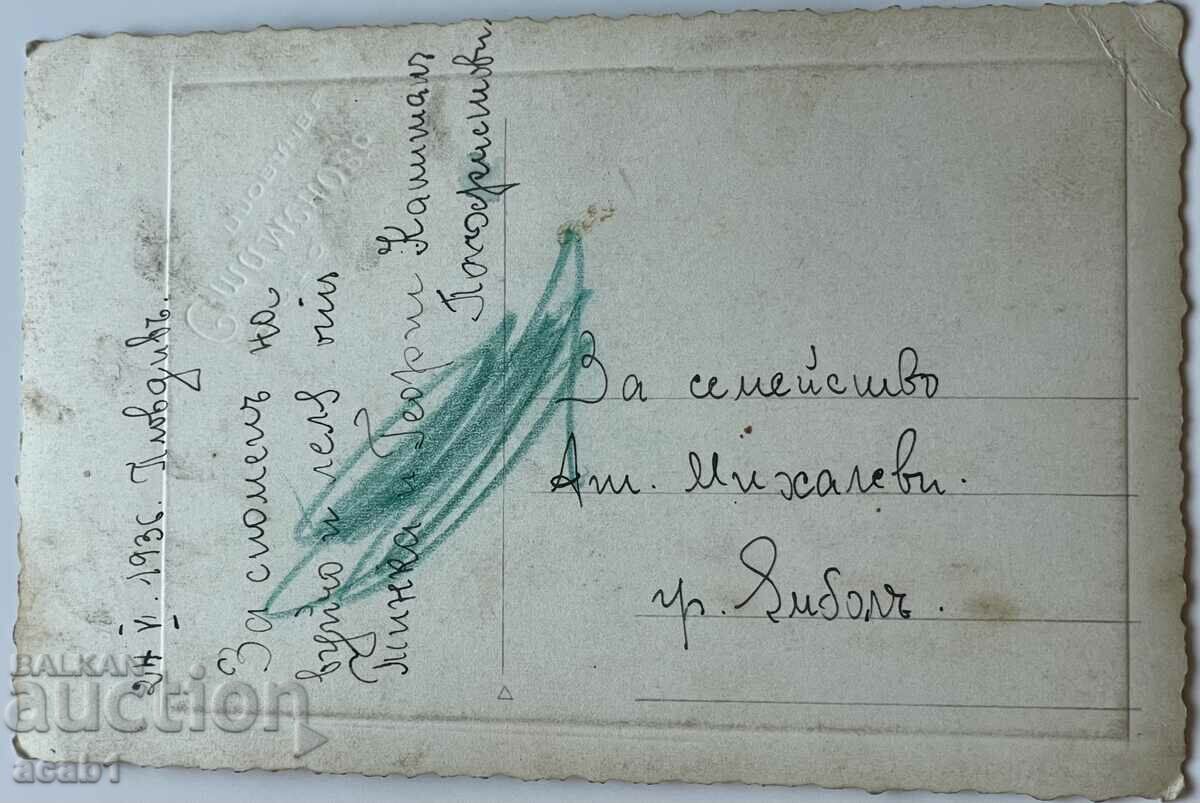 24 V. 1936. Пловдивъ.
За споменъ на
вуйчо и леля отъ
Минка и Георги Капитанъ
За семейство
Ат. Михалеви.
гр. Ямболъ.
BALKAN
auction
acab1